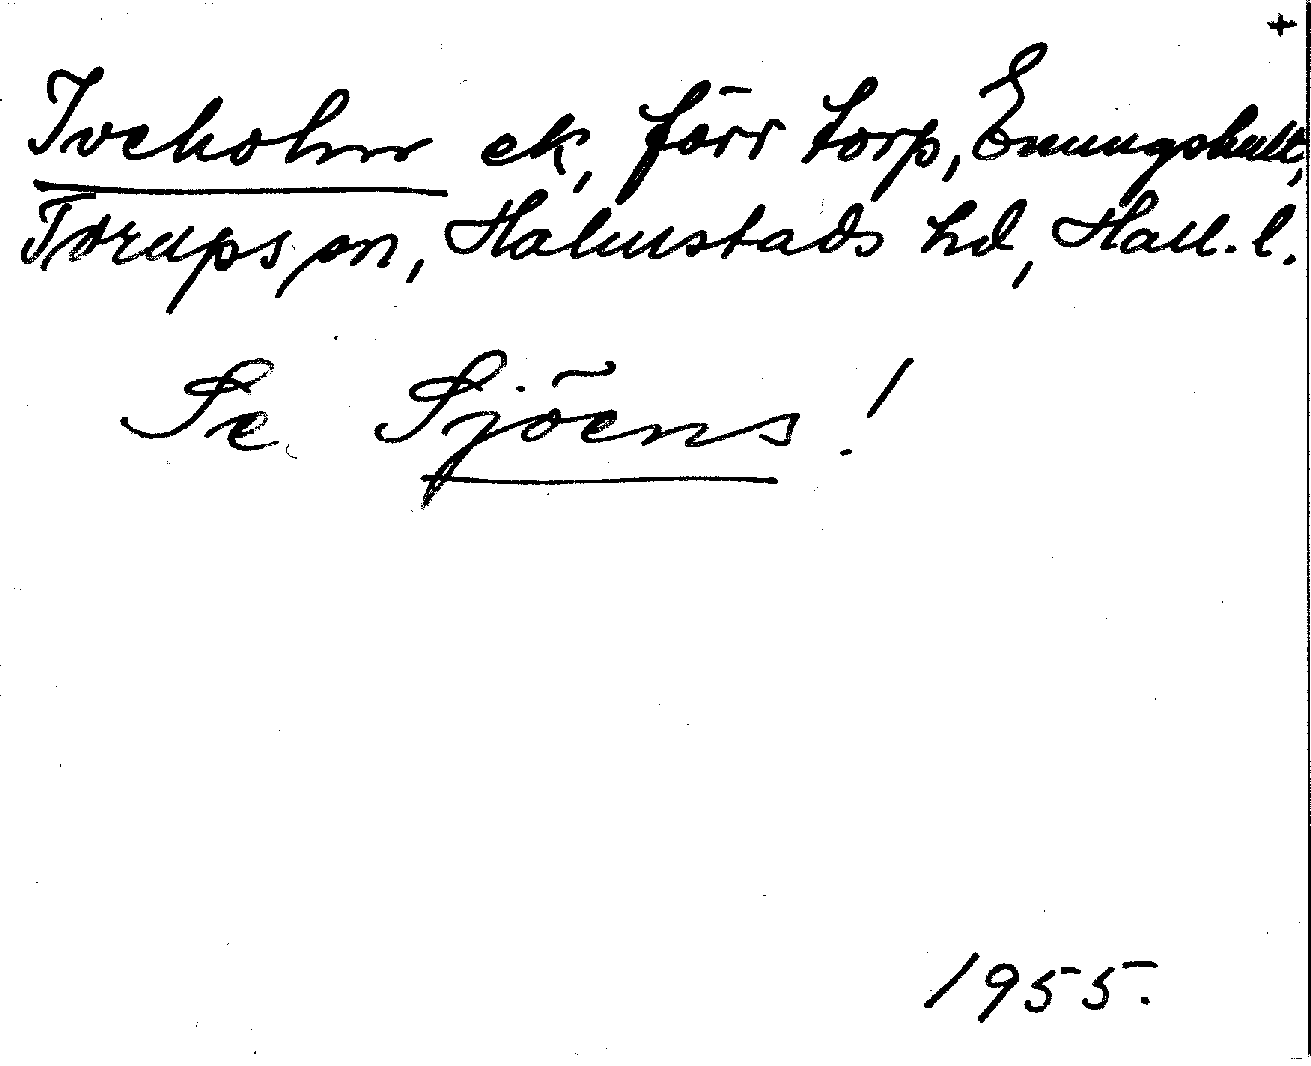 +
Iveholm ek, förr torp, Emungshult,
Torups sn, Halmstads hd, Hall. l.
Se Sjöens!
1955.